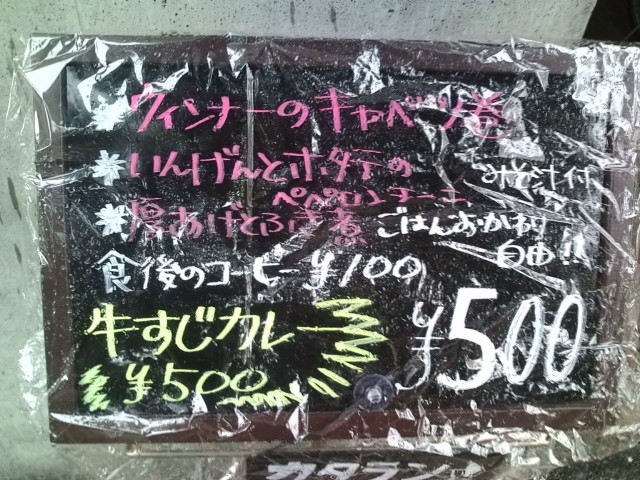 * ウィンナーのキャベツ巻
* いんげんとホタテの
ペペロンチーニ
みそ汁付
* 厚あげとふき煮
ごはんおかわり
自由!!
食後のコーヒー ¥100
牛すじカレー
¥500
¥500
カタラン